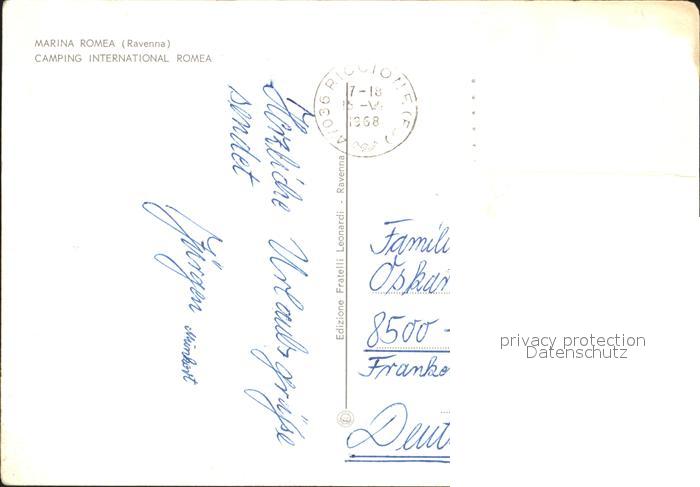 MARINA ROMEA (Ravenna)
CAMPING INTERNATIONAL ROMEA
47036 RICCIONE (FO)
17-18
1968
Herzliche Urlaubsgrüße
sendet
Jürgen
Edizione Fratelli Leonardi - Ravenna
Famili
Oskar
8500 -
Franke
Deut
privacy protection
Datenschutz